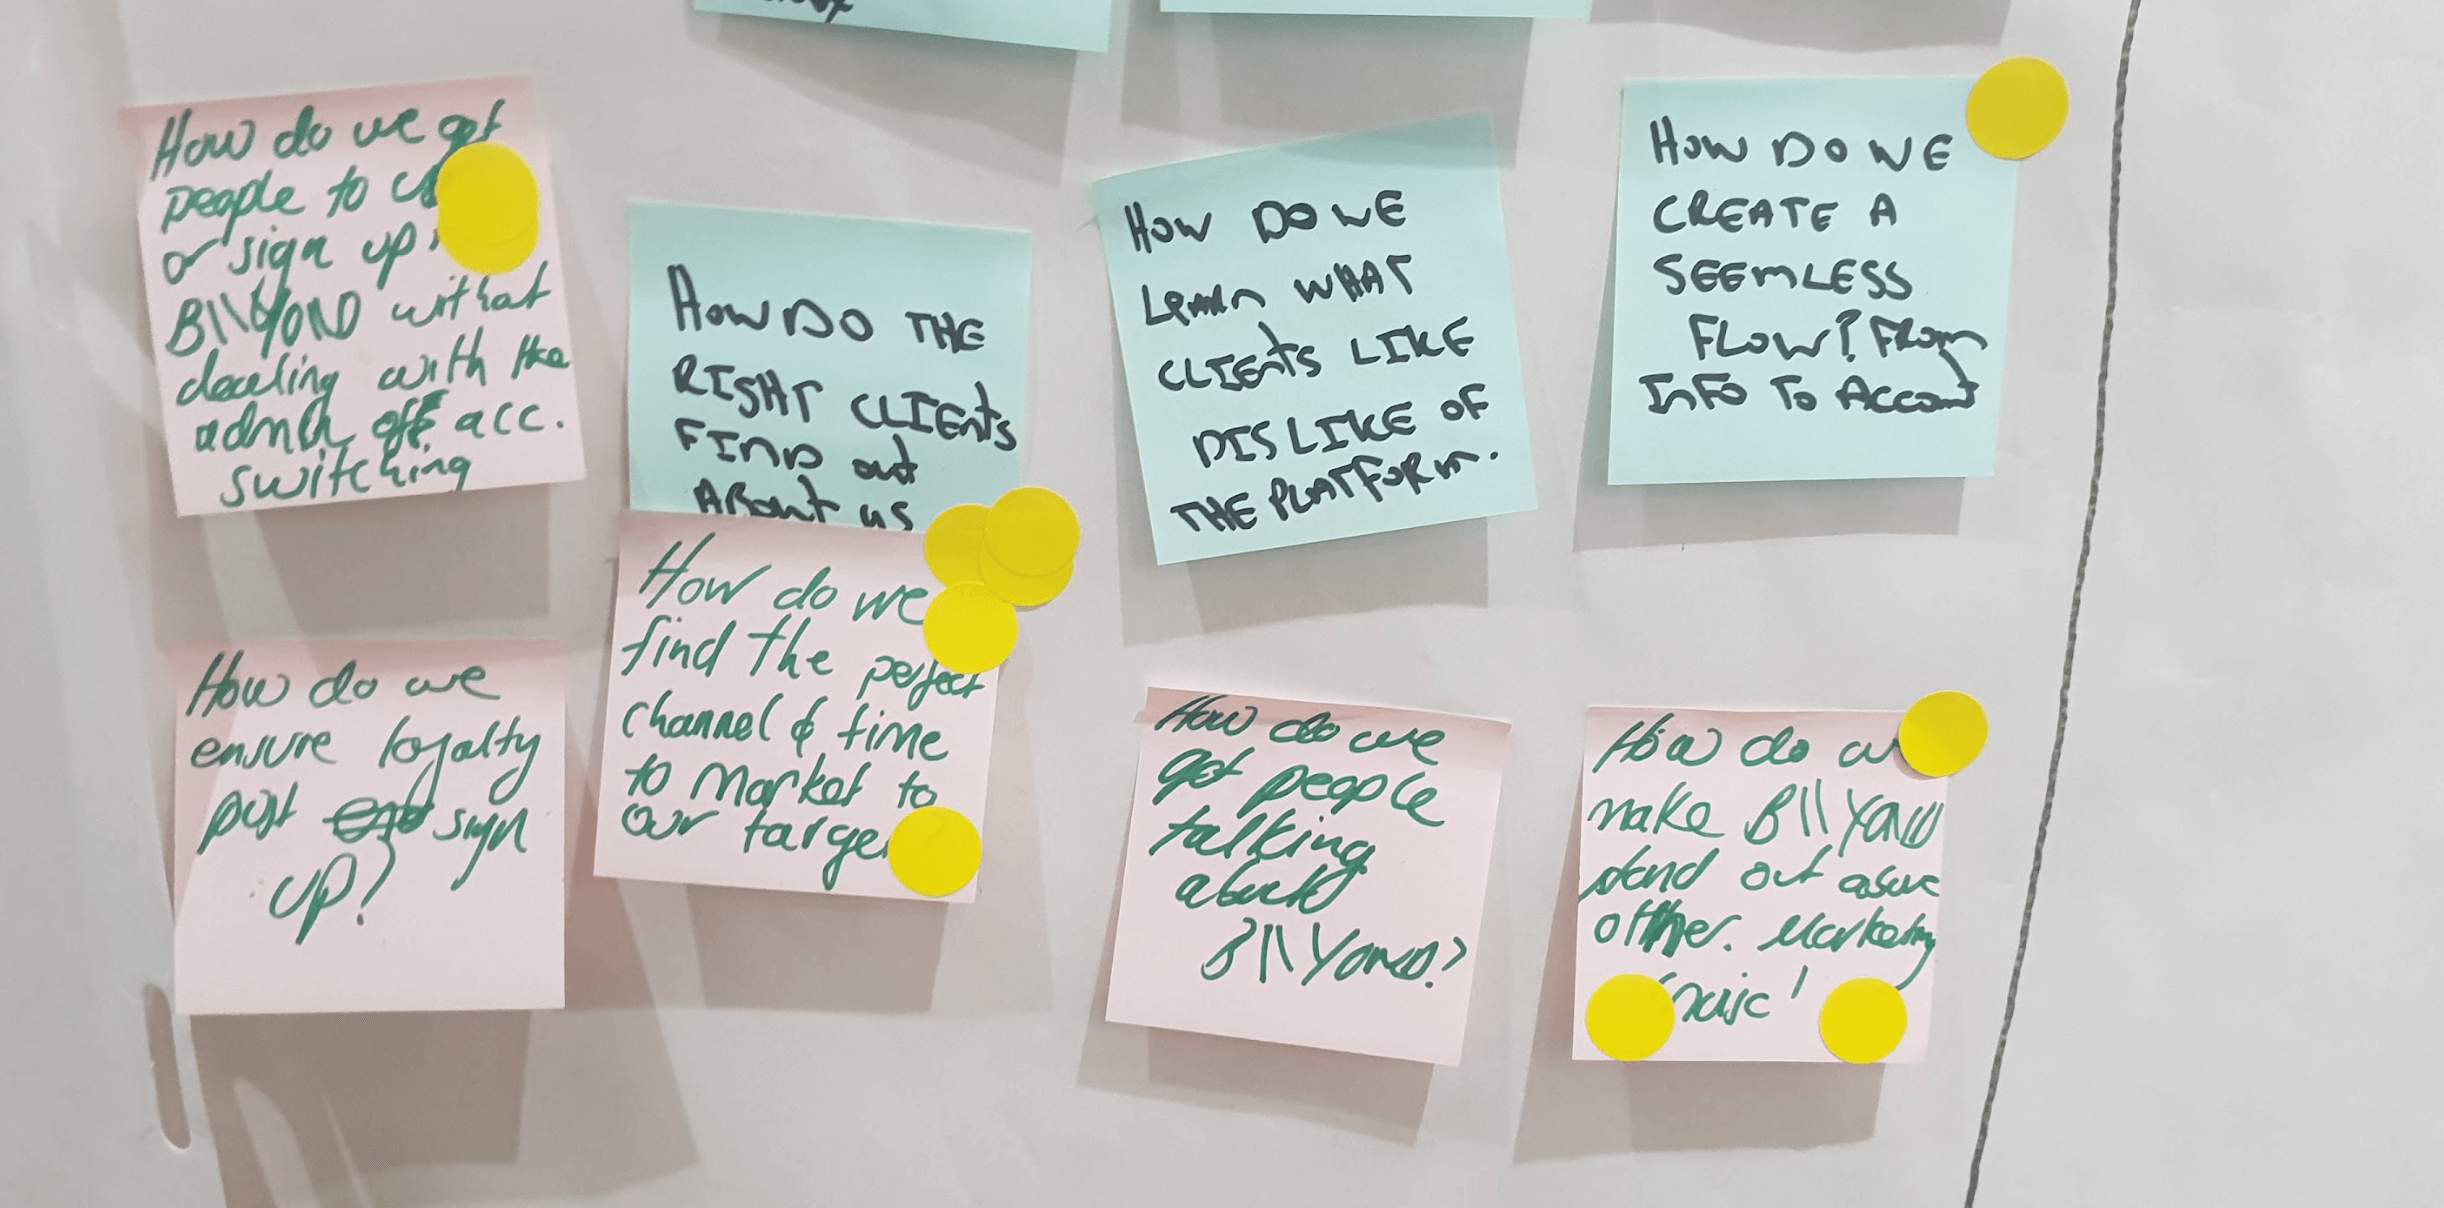 How do we get
people to
or sign up
BIIYOND without
dealing with the
admin off acc.
switching
HOW DO THE
RIGHT CLIENTS
FIND out
ABOUT us
HOW DO WE
LEARN WHAT
CLIENTS LIKE
DISLIKE OF
THE PLATFORM.
HOW DO WE
CREATE A
SEEMLESS
FLOW? FROM
INFO TO Account
How do we
ensure loyalty
post sign
up?
How do we
find the perfect
channel & time
to Market to
our target
How do we
get people
talking
about
BIIYOND?
How do we
make BIIYOND
stand out above
other. Marketing
'noise'